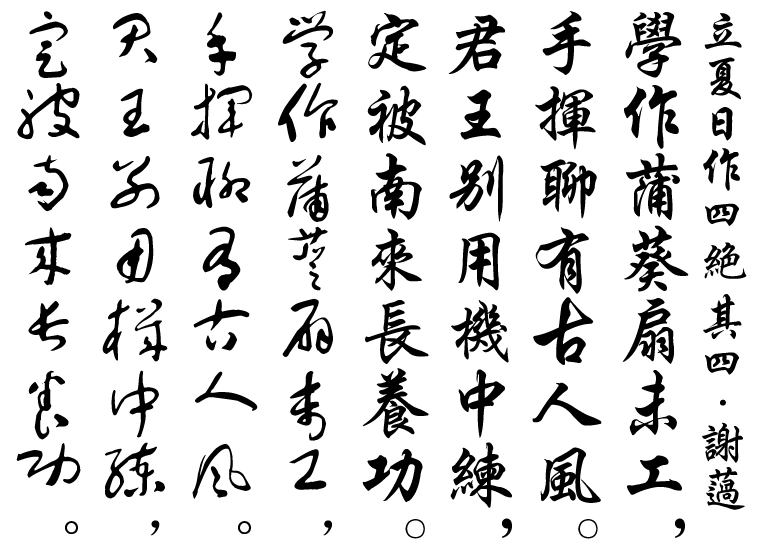 立夏日作四絕 其四．謝薖
學作蒲葵扇未工，
手揮聊有古人風。
君王别用機中練，
定被南來長養功。
學作蒲葵扇未工，
手揮聊有古人風。
君王别用機中練，
定被南來長養功。